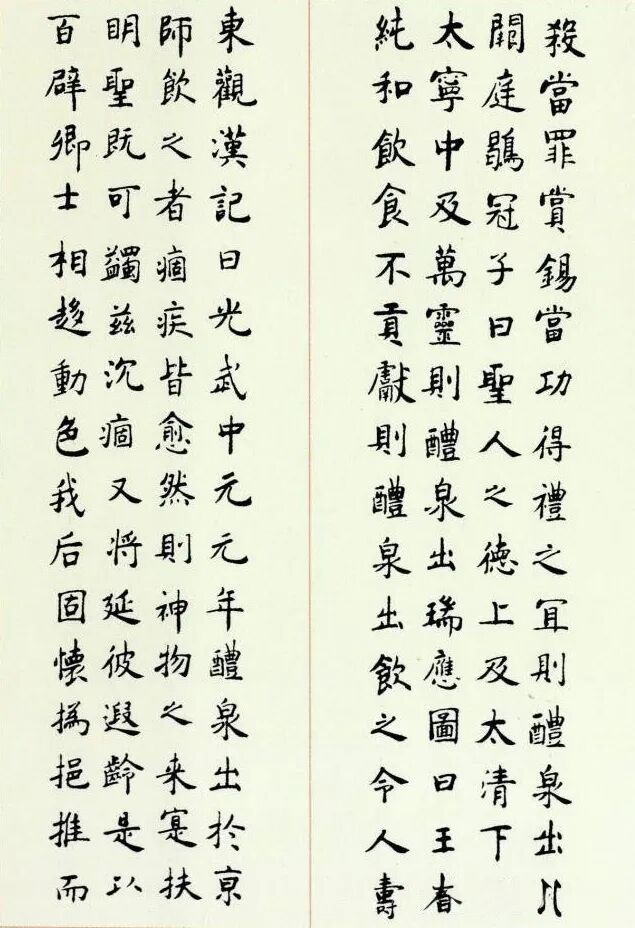 殺當罪賞錫當功得禮之宜則醴泉出
闕庭鶡冠子曰聖人之德上及太清下
太寧中及萬靈則醴泉出瑞應圖曰王者
純和飲食不貢獻則醴泉出飲之令人壽
東觀漢記曰光武中元元年醴泉出於京
師飲之者痼疾皆愈然則神物之来寔扶
明聖既可蠲兹沉痼又将延彼遐齡是以
百辟卿士相趍動色我后固懷撝挹推而